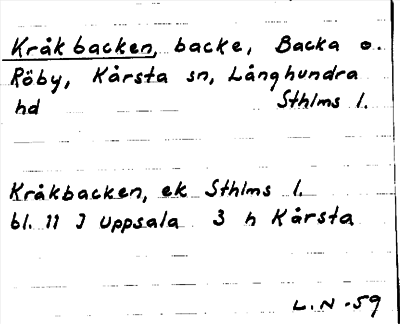 Kråkbacken, backe, Backa o.
Röby, Kårsta sn, Långhundra
hd Sthlms l.
Kråkbacken, ek Sthlms l.
bl. 11 J Uppsala 3 h Kårsta
L.N -59